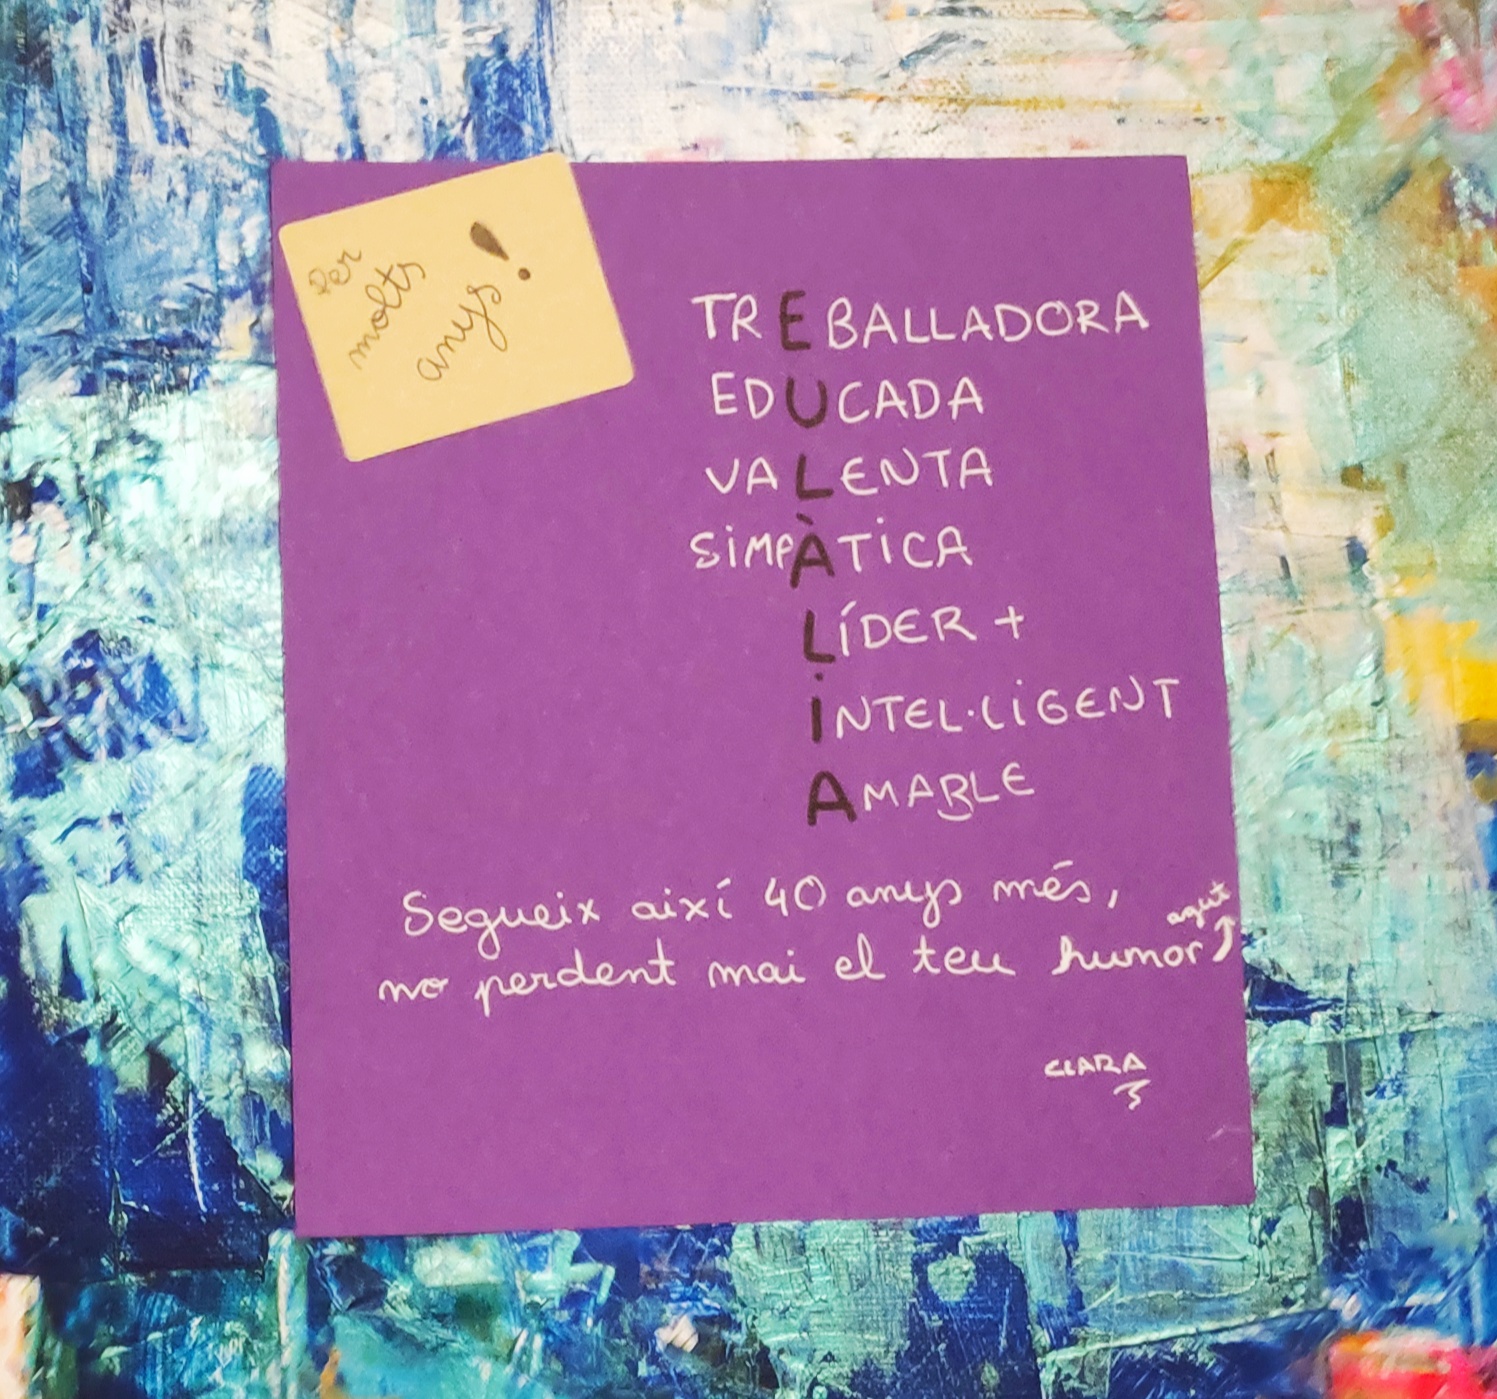 Per
molts
anys!
TREBALLADORA
EDUCADA
VALENTA
SIMPÀTICA
LÍDER +
INTEL·LIGENT
AMABLE
Segueix així 40 anys més,
no perdent mai el teu humor
agut
CLARA